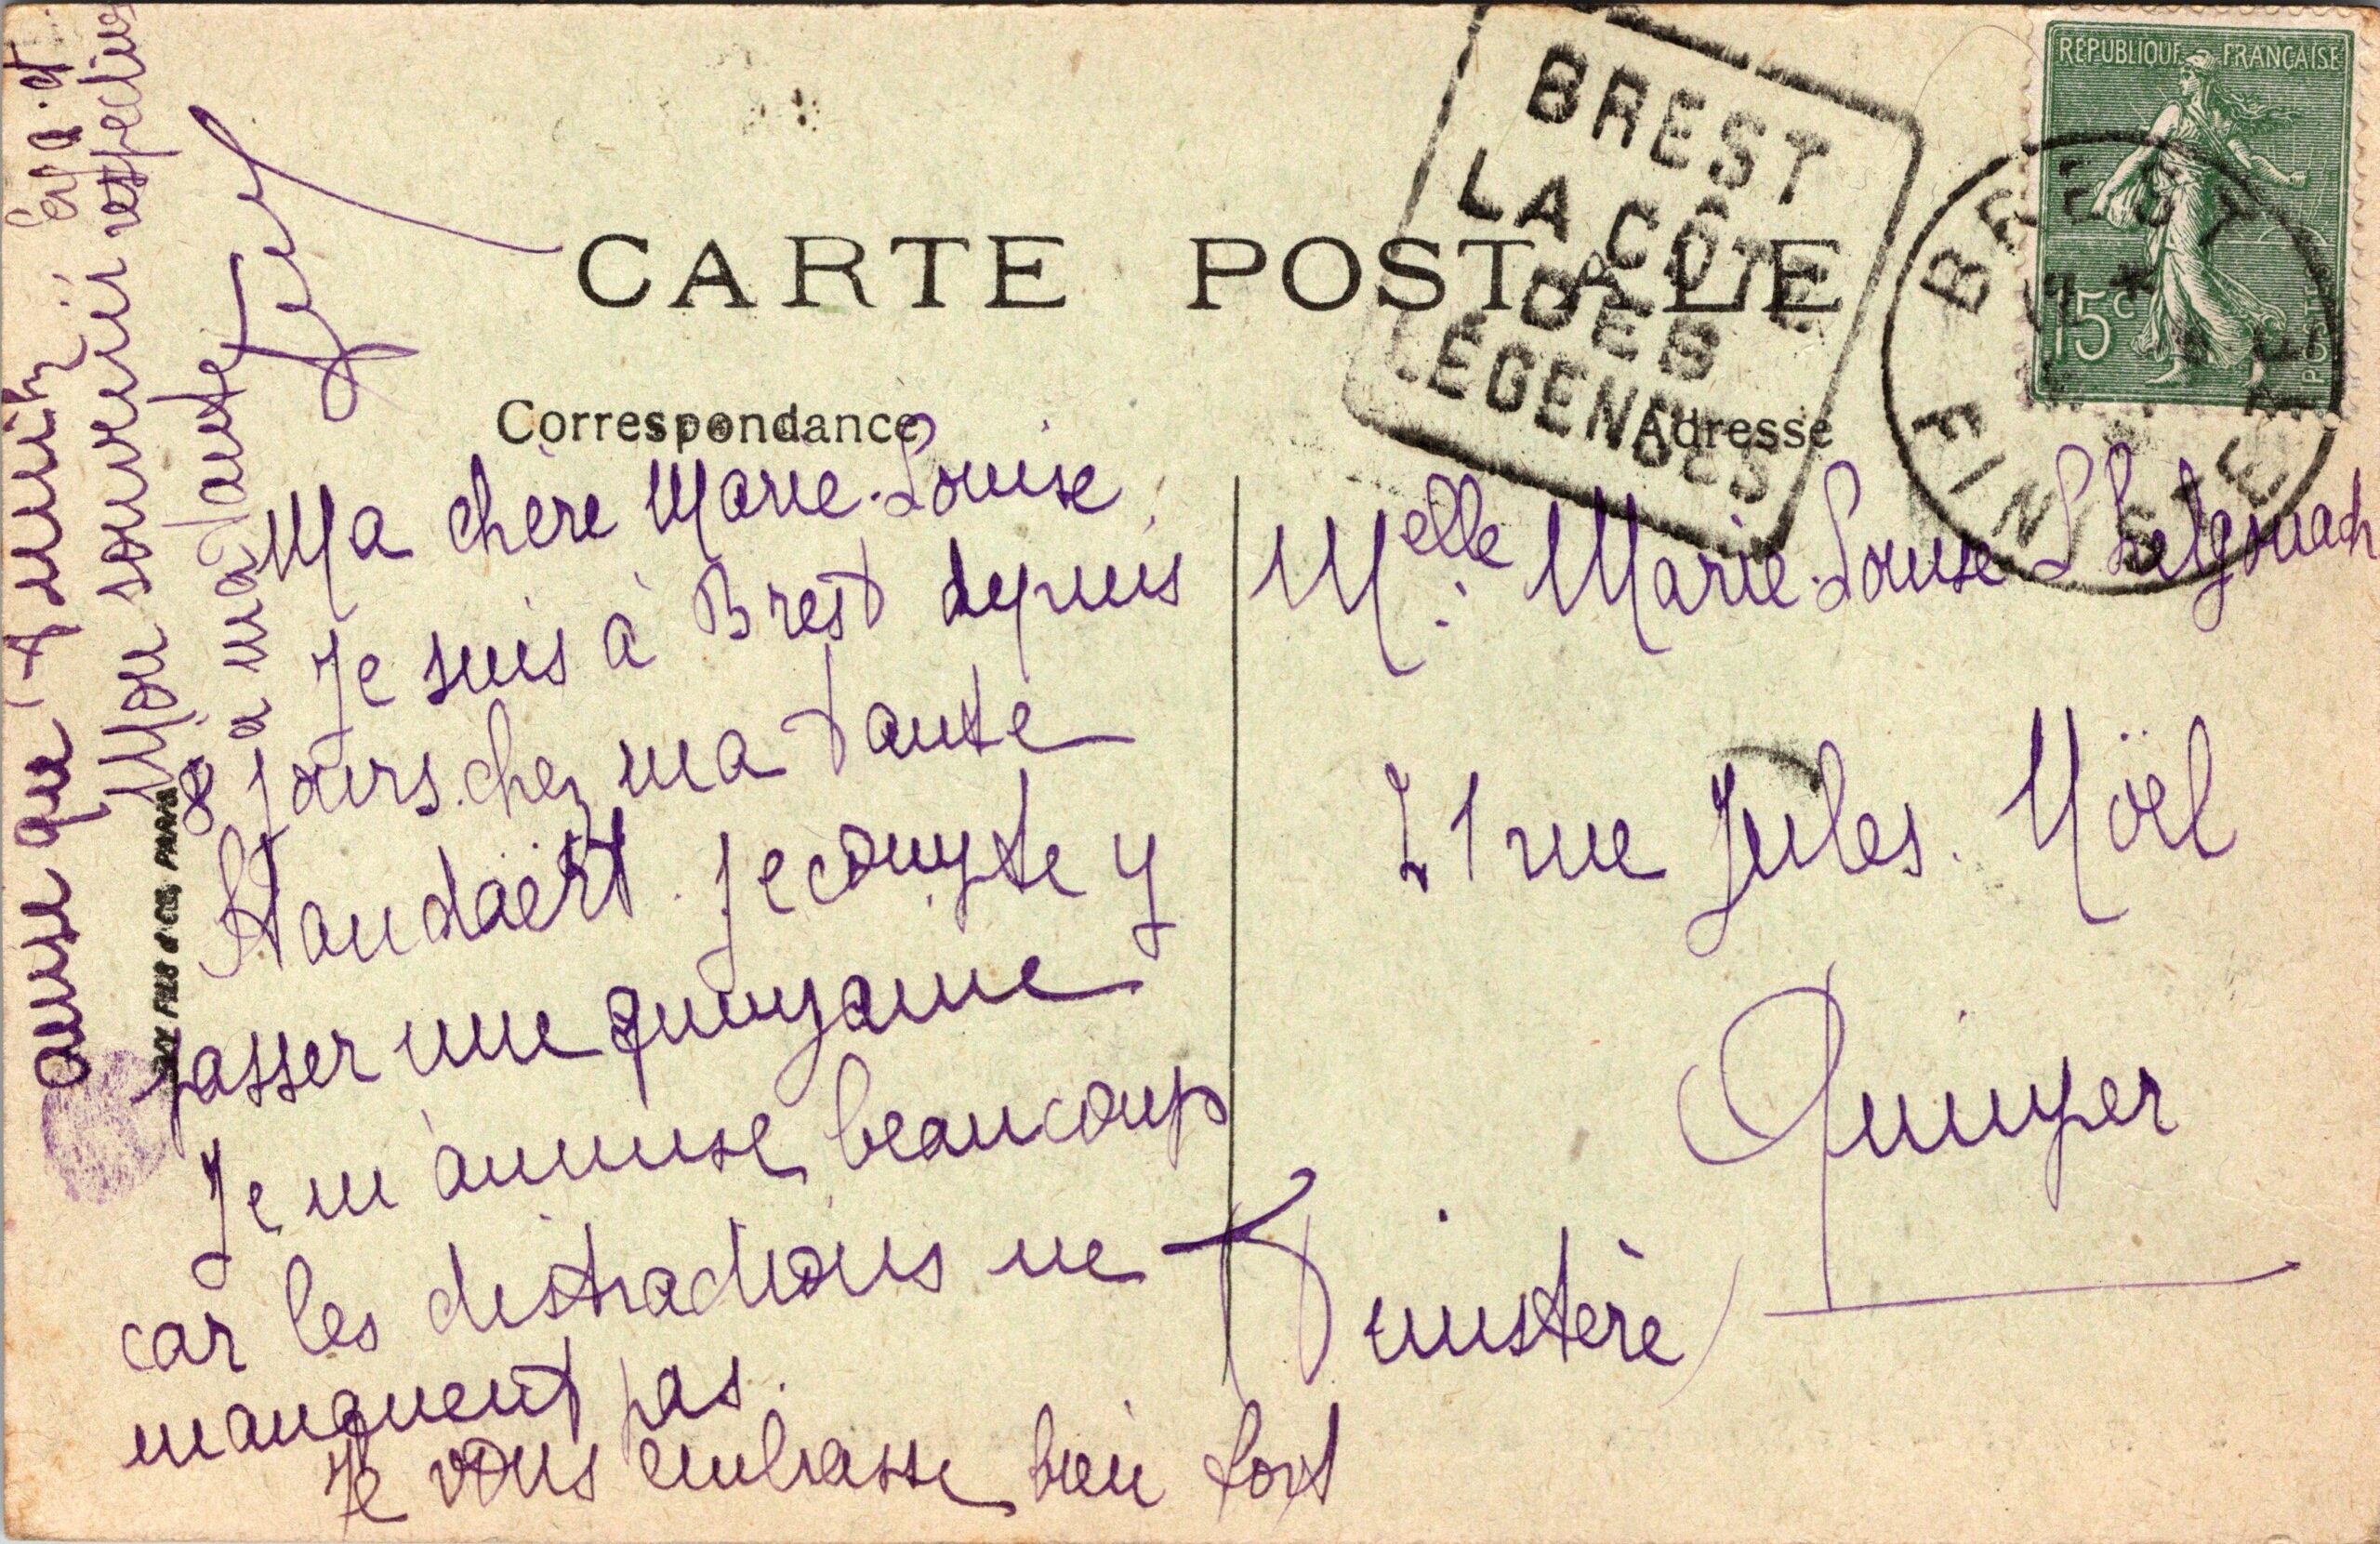 CARTE POSTALE
BREST
LA CÔTE
DES
LÉGENDES
REPUBLIQUE FRANÇAISE
15c
POSTES
BREST
FINISTERE
Correspondance
Adresse
Ma chère Marie-Louise
Je suis à Brest depuis
8 jours chez ma tante
Standaërt. Je compte y
passer une quinzaine
Je m'amuse beaucoup
car les distractions ne
manquent pas.
Je vous embrasse bien fort
ainsi que
Mon souvenir respectueux
à ma tante
FILS & CIE, PARIS
Melle Marie-Louise Lhelgouach
21 rue Jules Noël
Quimper
Finistère